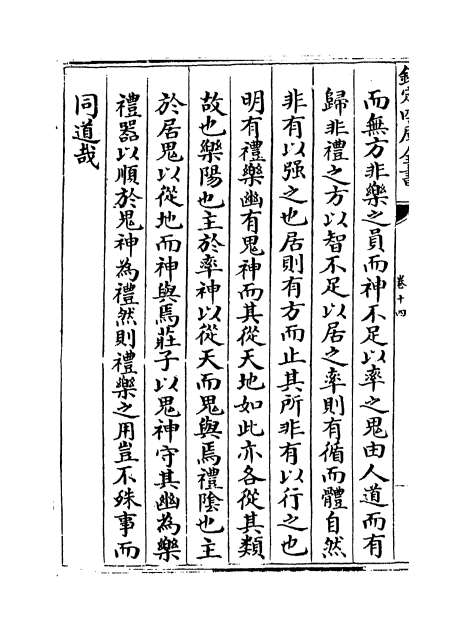 欽定四庫全書
卷十四
而無方非樂之員而神不足以率之鬼由人道而有
歸非禮之方以智不足以居之率則有循而體自然
非有以强之也居則有方而止其所非有以行之也
明有禮樂幽有鬼神而其從天地如此亦各從其類
故也樂陽也主於率神以從天而鬼與焉禮隂也主
於居鬼以從地而神與焉莊子以鬼神守其幽為樂
禮器以順於鬼神為禮然則禮樂之用豈不殊事而
同道哉